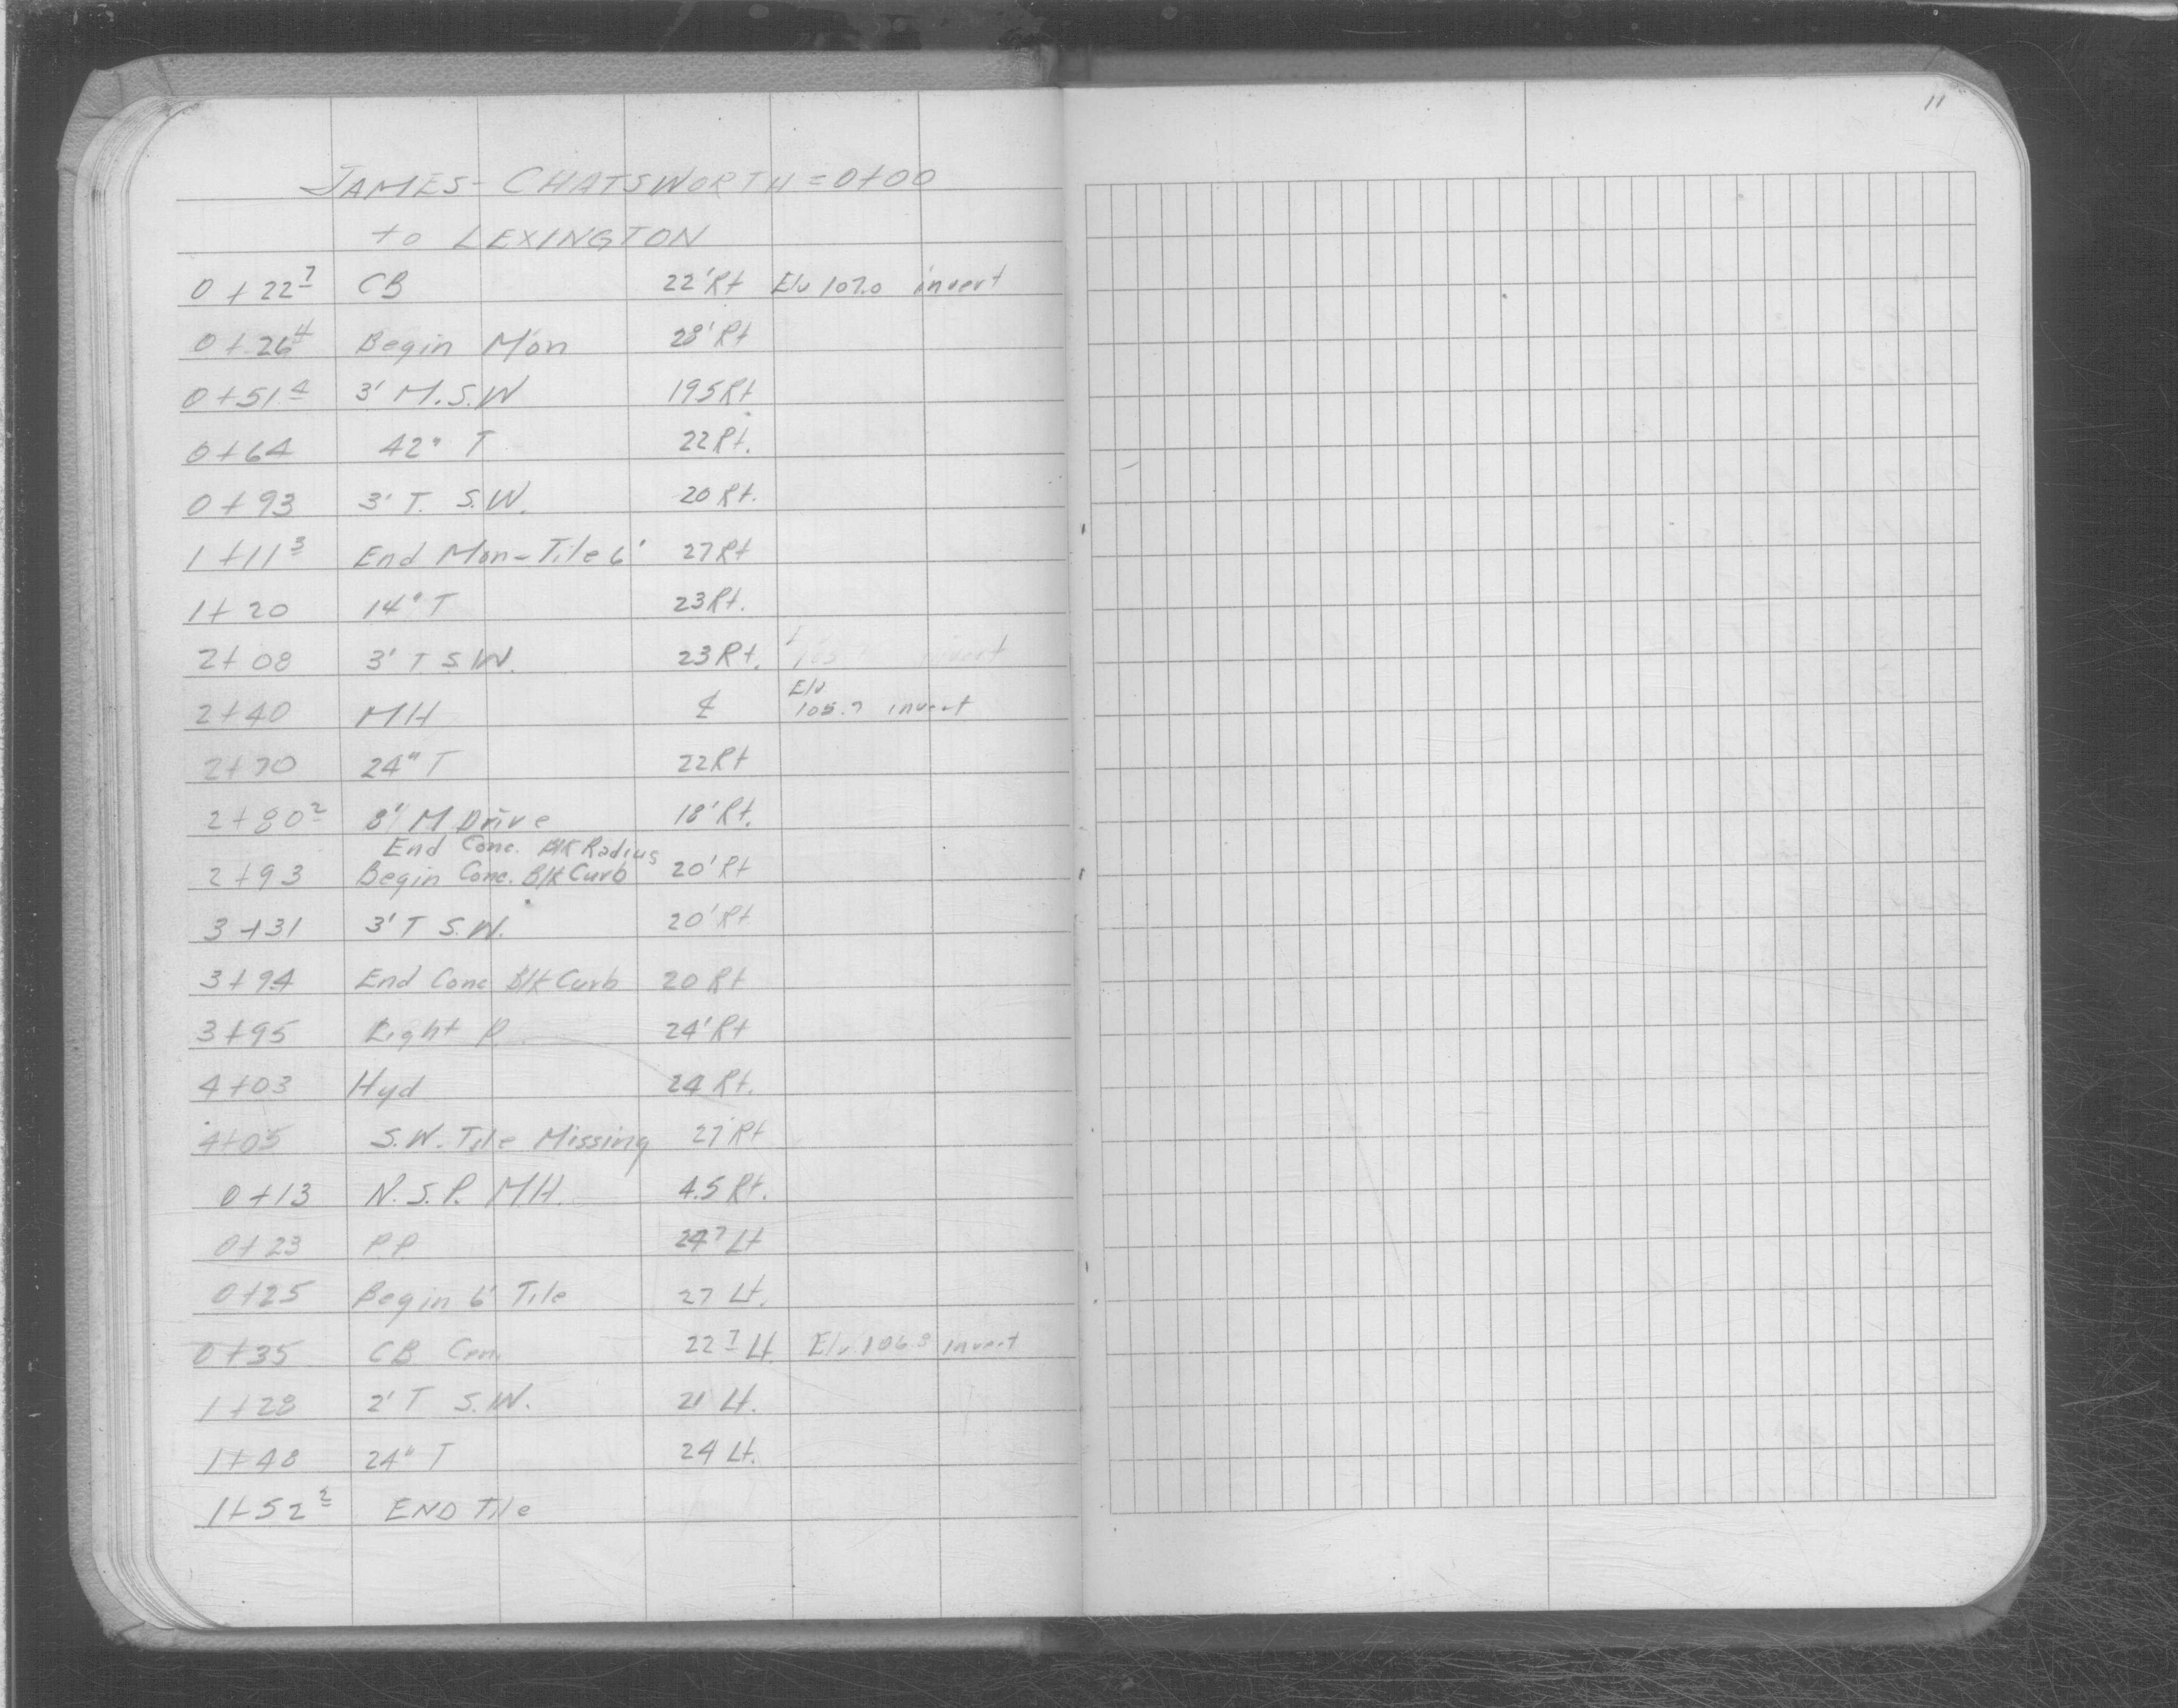 11
JAMES - CHATSWORTH = 0+00
to LEXINGTON
0+22 7 CB 22' Rt Elv 107.0 invert
0+26 4 Begin Mon 28' Rt
0+51 4 3' M.S.W 195 Rt
0+64 42" T 22 Rt.
0+93 3' T. S.W. 20 Rt.
1+11 3 End Mon - Tile 6' 27 Rt
1+20 14" T 23 Rt.
2+08 3' T S.W. 23 Rt. invert
Elv
2+40 MH ℄ 105.7 invert
2+70 24" T 22 Rt
2+80 2 8' M Drive 18' Rt.
End Conc. Blk Radius
2+93 Begin Conc. Blk Curb 20' Rt
3+31 3' T S.W. 20' Rt
3+94 End Conc Blk Curb 20 Rt
3+95 Light P 24' Rt
4+03 Hyd 24 Rt.
4+05 S.W. Tile Missing 27 Rt
0+13 N.S.P. MH. 4.5 Rt.
0+23 P.P 24 7 Lt
0+25 Begin 6' Tile 27 Lt.
0+35 CB Cen. 22 7 Lt Elv. 106.8 invert
1+28 2' T S.W. 21 Lt.
1+48 24" T 24 Lt.
1+52 2 END Tile